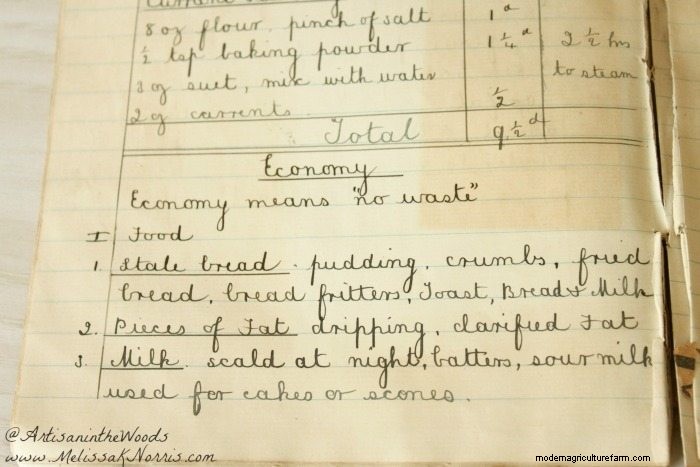 8 oz flour, pinch of salt 1d
½ tsp baking powder 1¼d 2½ hrs
3 oz suet, mix with water to steam
2 oz currents ½
Total 9½d
Economy
Economy means "no waste"
I Food
1. Stale bread. pudding, crumbs, fried
bread, bread fritters, Toast, Bread & Milk
2. Pieces of Fat dripping, clarified Fat
3. Milk. scald at night, batters, sour milk
used for cakes or scones.
@ArtisanintheWoods
www.MelissaKNorris.com
modernagriculturefarm.com